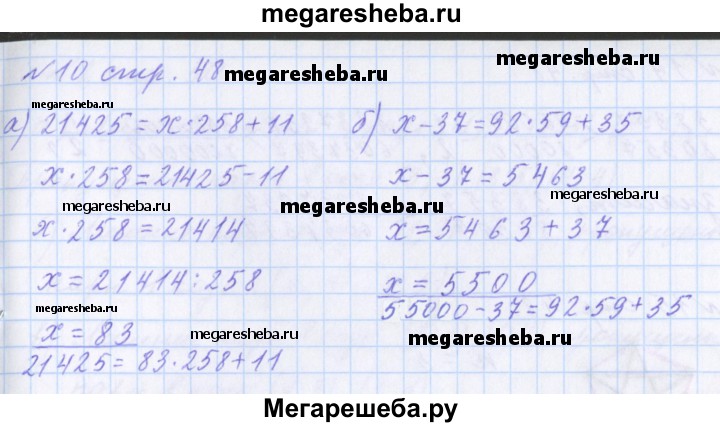 megaresheba.ru
№10 стр. 48 megaresheba.ru megaresheba.ru
megaresheba.ru
а) 21425=x·258+11 б) x-37=92·59+35
x·258=21425-11 x-37=5463
megaresheba.ru megaresheba.ru megaresheba.ru
x·258=21414 x=5463+37
x=21414:258 x=5500
megaresheba.ru 55000-37=92·59+35
x=83 megaresheba.ru megaresheba.ru
21425=83·258+11
Мегарешеба.ру